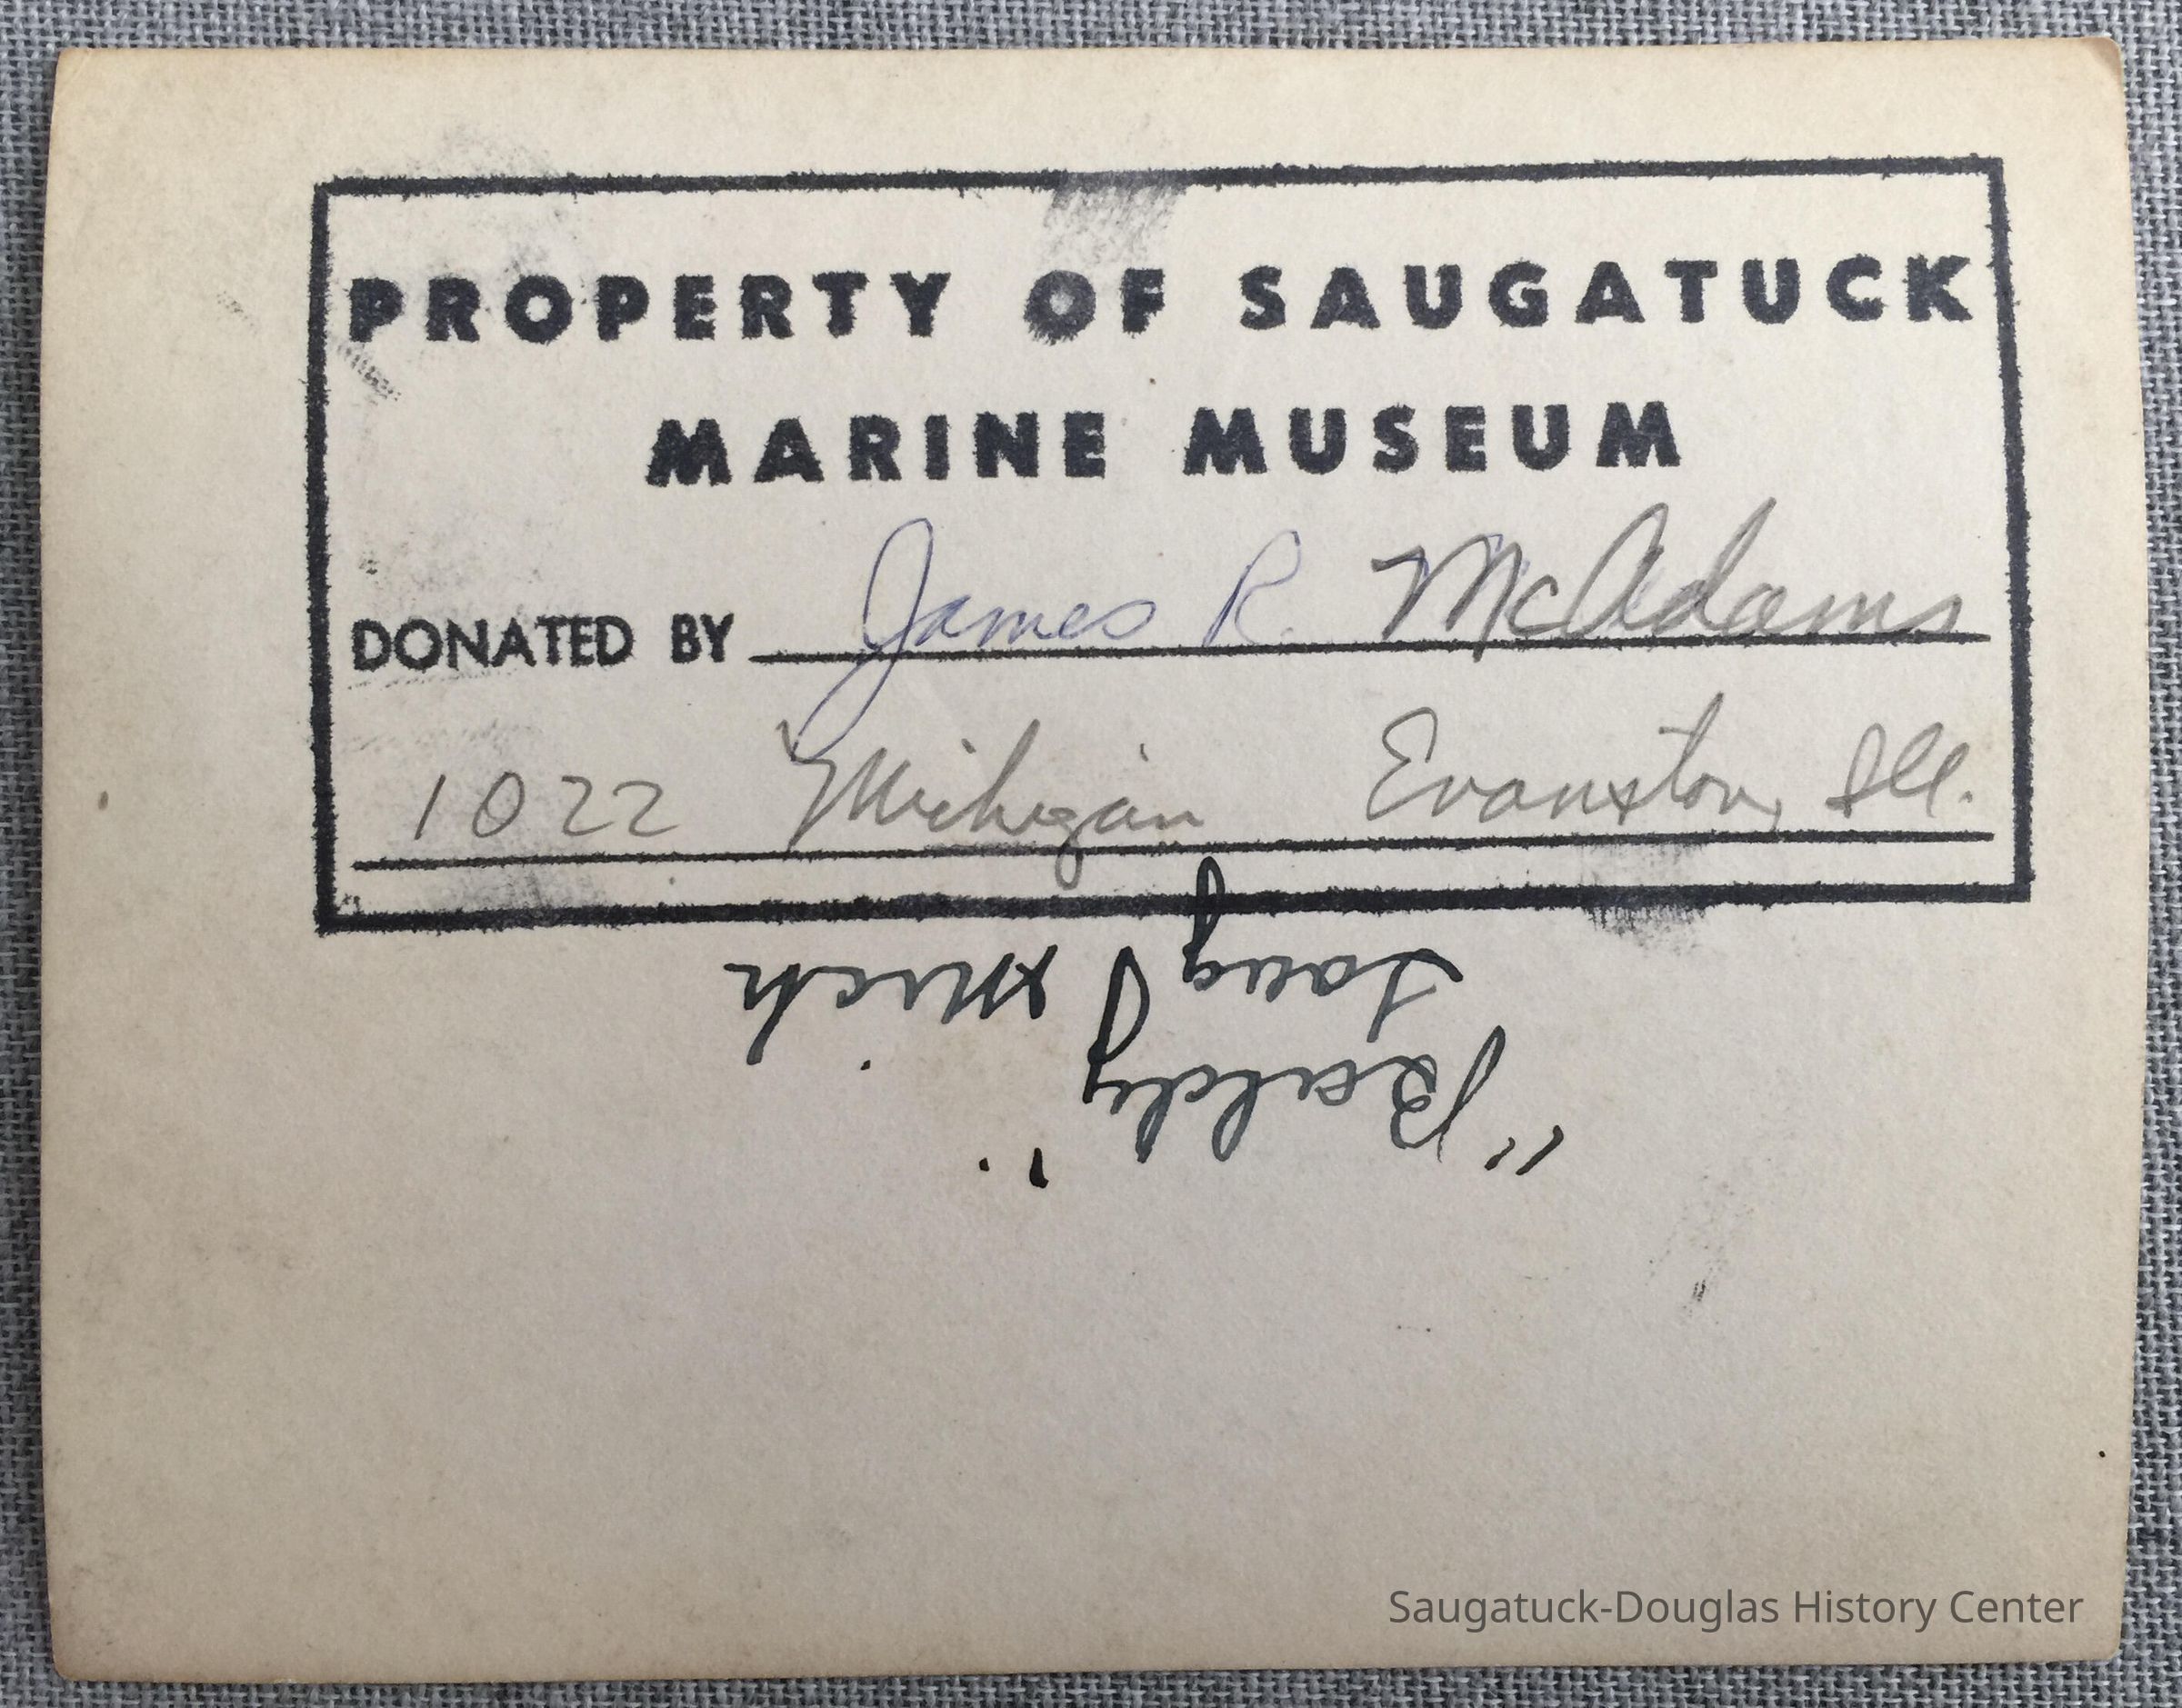 PROPERTY OF SAUGATUCK
MARINE MUSEUM
DONATED BY James R. McAdams
1022 Michigan Evanston, Ill.
"Baldy"
Saug Mich
Saugatuck-Douglas History Center